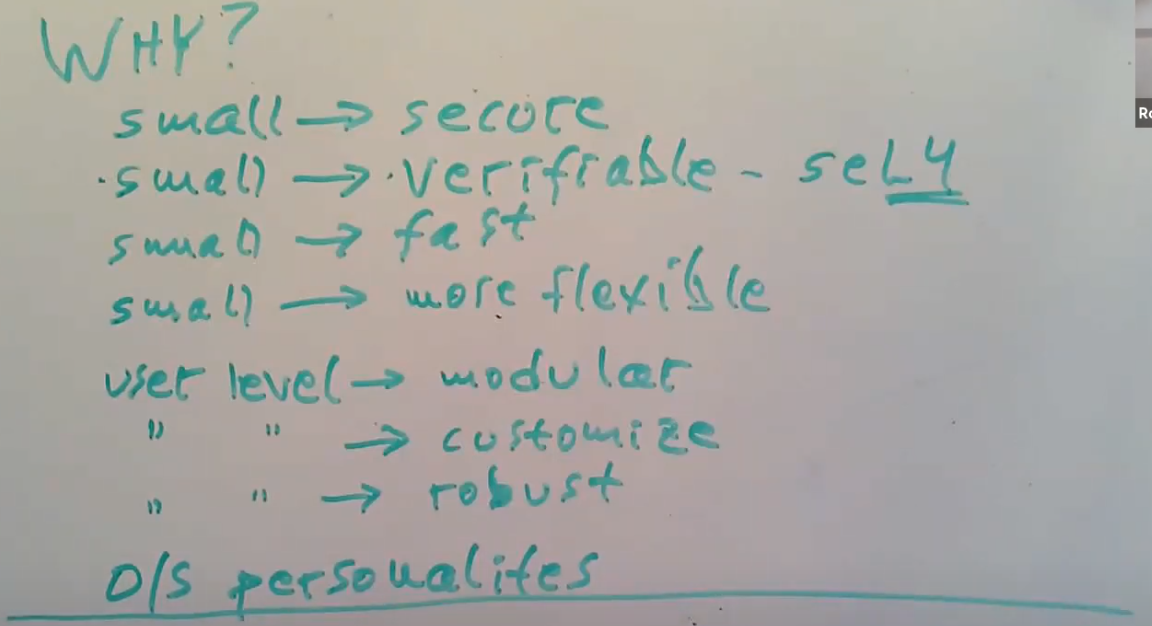 WHY?
small → secure
small → verifiable - seL4
small → fast
small → more flexible
user level → modular
" " → customize
" " → robust
O/S personalites
Ro